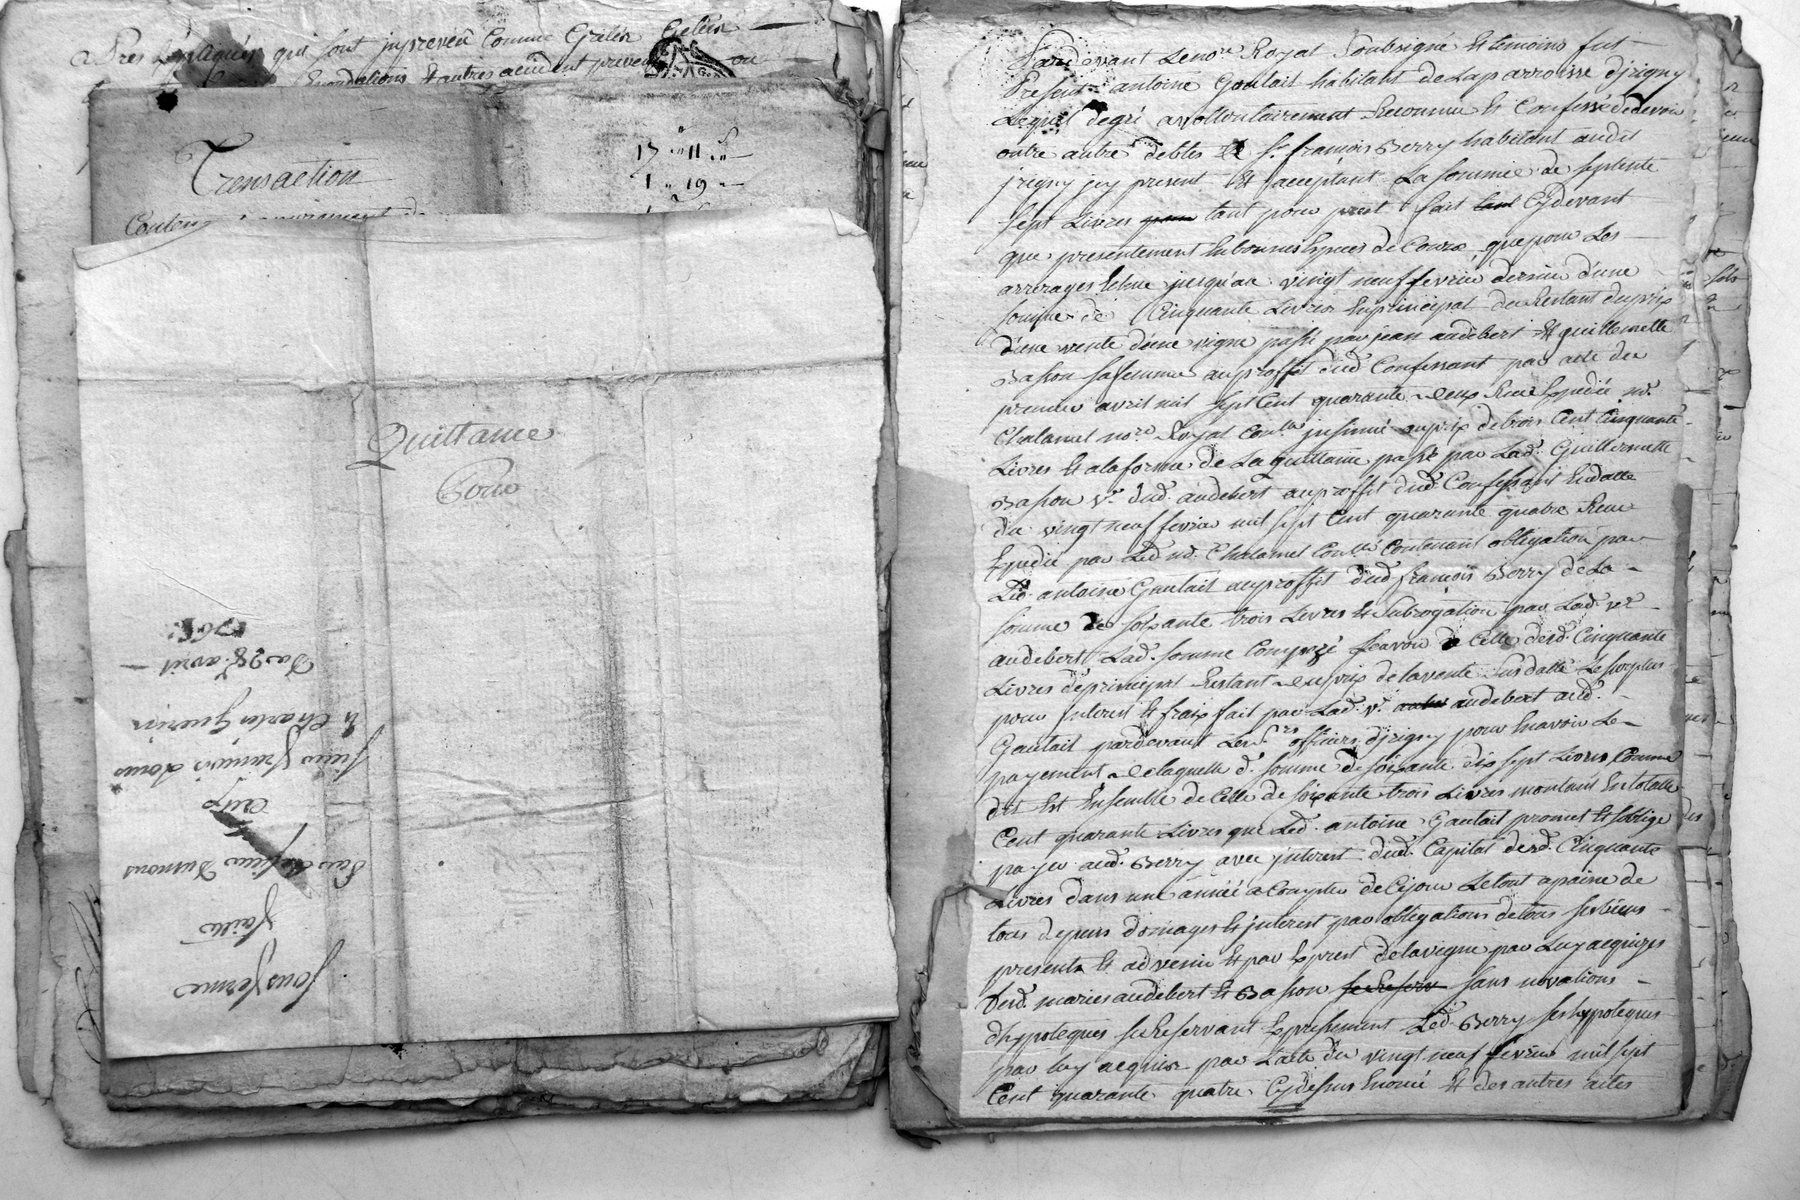 Près expliqués qui sont jnpreveu Comme Grelés Gelées
Inondations Et autres accident prevenu ou
Transaction
17 11
1 19
Quittance
Pour
Sousferme
faitte
Par
aux
Sieur françois Louis
& Charles Guerin
Du 28e. avril
Pardevant Le no.re Royal Soubsigné Et temoins fut
Present antoine Gautait habitant de La parroisse d'jrigny
Lequel de gré a vollontairement Reconnu Et Confessé de devoir
outre autre debtes a S.r françois Berry habitant audit
jrigny jcy present Et acceptant La somme de septente
sept Livres tant pour prest fait Cydevant
que presentement En bonnes Especes de Cours que pour Les
arrerages Echue jusqu'au vingt neuf fevrier dernier d'une
somme de Cinquante Livres En principal du Restant du prix
d'une vente d'une vigne passé par jean audebert Et guillemette
Basson sa femme au proffit dud. Confessant par acte du
premier avril mil sept Cent quarante deux Receu Expedié m.e
Chalamel no.re Royal jnsinué au prix de trois Cent Cinquante
Livres Et a la forme de La quittance passé par Lad. Guillemette
Basson v.e dud. audebert au proffit dud. Confessant En datte
du vingt neuf fevrier mil sept Cent quarante quatre Receu
Expedié par Led. m.e Chalamel Contenant obligation par
Led. antoine Gautait au proffit dud. françois Berry de La
somme de soixante trois Livres Et Subrogation par Lad. v.e
audebert Lad. somme Composé sçavoir de Celle desd. Cinquante
Livres de principal Restant du prix de la vente Susdatté Le surplus
pour Interest Et fraix fait par Lad. v.e audebert aud.
Gautait pardevant Les S.rs officiers d'jrigny pour En avoir Le
payement de laquelle d. somme de soixante dix sept Livres Comme
dit Est Ensemble de Celle de soixante trois Livres montant En totalle
Cent quarante Livres que Led. antoine Gautait promet Et s'oblige
payer aud. Berry avec jnterest dud. Capital desd. Cinquante
Livres dans une année a Compter de Cejour Le tout a paine de
tous depens domages Et jnterest par obligations de tous ses biens
presents Et advenir Et par Exprest de la vigne par Luy acquise
desd. mariés audebert Et Basson sans novations
d'hypoteques se Reservant Expressement Led. Berry ses hypoteques
par luy acquise par L'acte du vingt neuf fevrier mil sept
Cent quarante quatre Cydessus Enoncé Et des autres actes